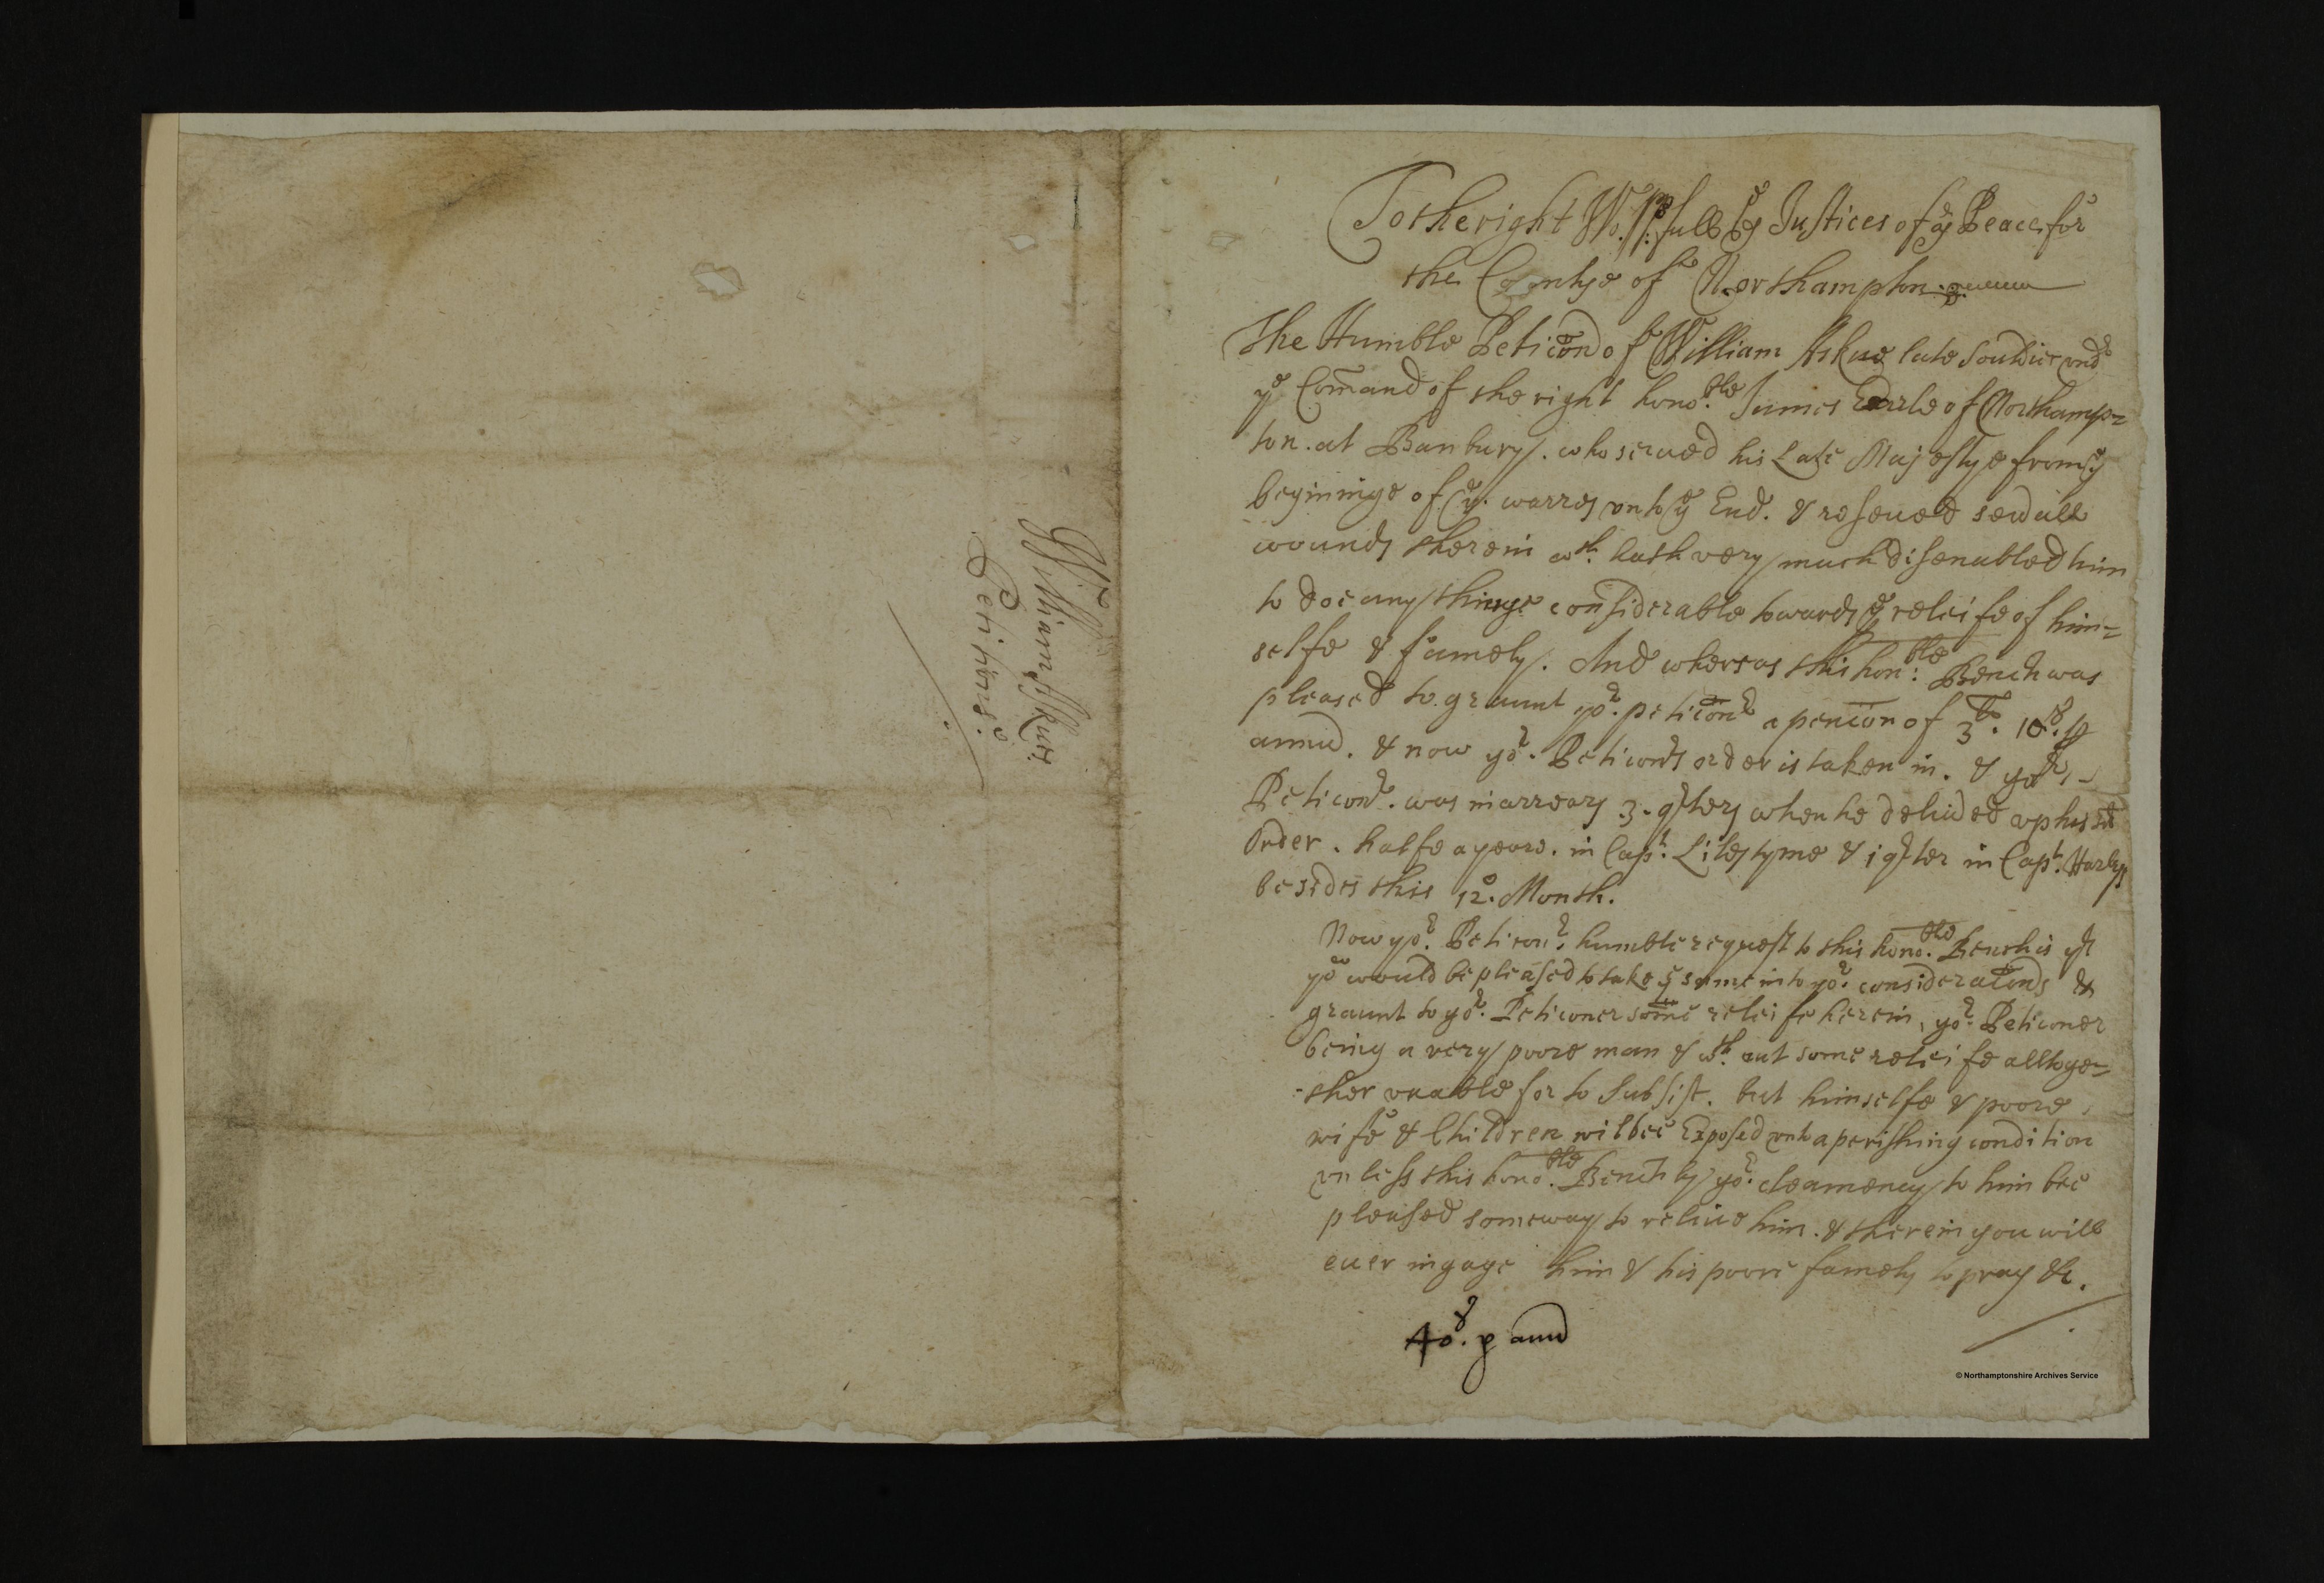 To the right Wo:pfull ye Justices of ye Peace for
the Countye of Northampton
The Humble Peticon of William Askue late Souldier undr
ye Comand of the right honoble James Earle of Northamp=
ton. at Banbury. who serued his Late Majestye from ye
beginninge of ye warres unto ye End. & reseued seuall
wounds therein wch. hath very much disenabled him
to doe any thinge considerable towards ye releife of him=
selfe & famely. And whereas this honble: Bench was
pleased to graunt yor. peticonr a pencion of 3l. 10s. p
annu. & now yor. Peticonrs order is taken in. & yor.
Peticonr. was in arrears .3. qters when he deliued up his sd
Order. halfe a yeare. in Capt. Liles tyme & 1 qter in Capt. Harleys
besides this 12. Month.
Now yor. Peticonrs. humble request to this honoble. Bench is yt
you would be pleased to take ye same into yor. consideratons &
graunt to yor. Peticoner some releife herein, yor. Peticoner
being a very poore man & wth. out some releife alltoge=
-ther unable for to Subsist. but himselfe & poore
wife & Children wilbee Exposed unto a perishing condition
unless this honoble. Bench by yor. cleamency to him bee
pleased someway to reliue him. & therein you will
euer ingage him & his poore famely to pray &c.
40s. p annu
William Askues
Peticions.
© Northamptonshire Archives Service